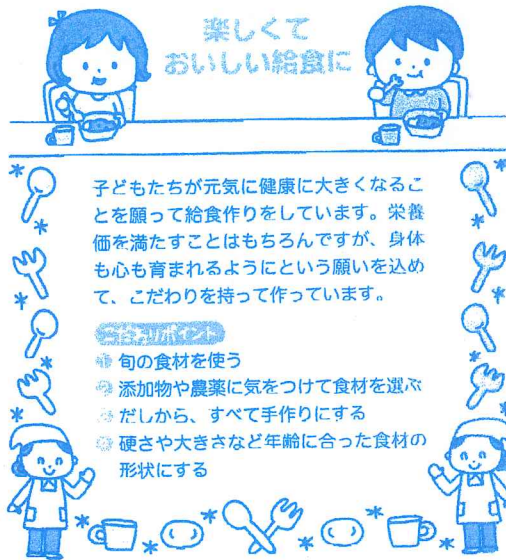 楽しくて
おいしい給食に
子どもたちが元気に健康に大きくなるこ
とを願って給食作りをしています。栄養
価を満たすことはもちろんですが、身体
も心も育まれるようにという願いを込め
て、こだわりを持って作っています。
こだわりポイント
旬の食材を使う
添加物や農薬に気をつけて食材を選ぶ
だしから、すべて手作りにする
硬さや大きさなど年齢に合った食材の
形状にする